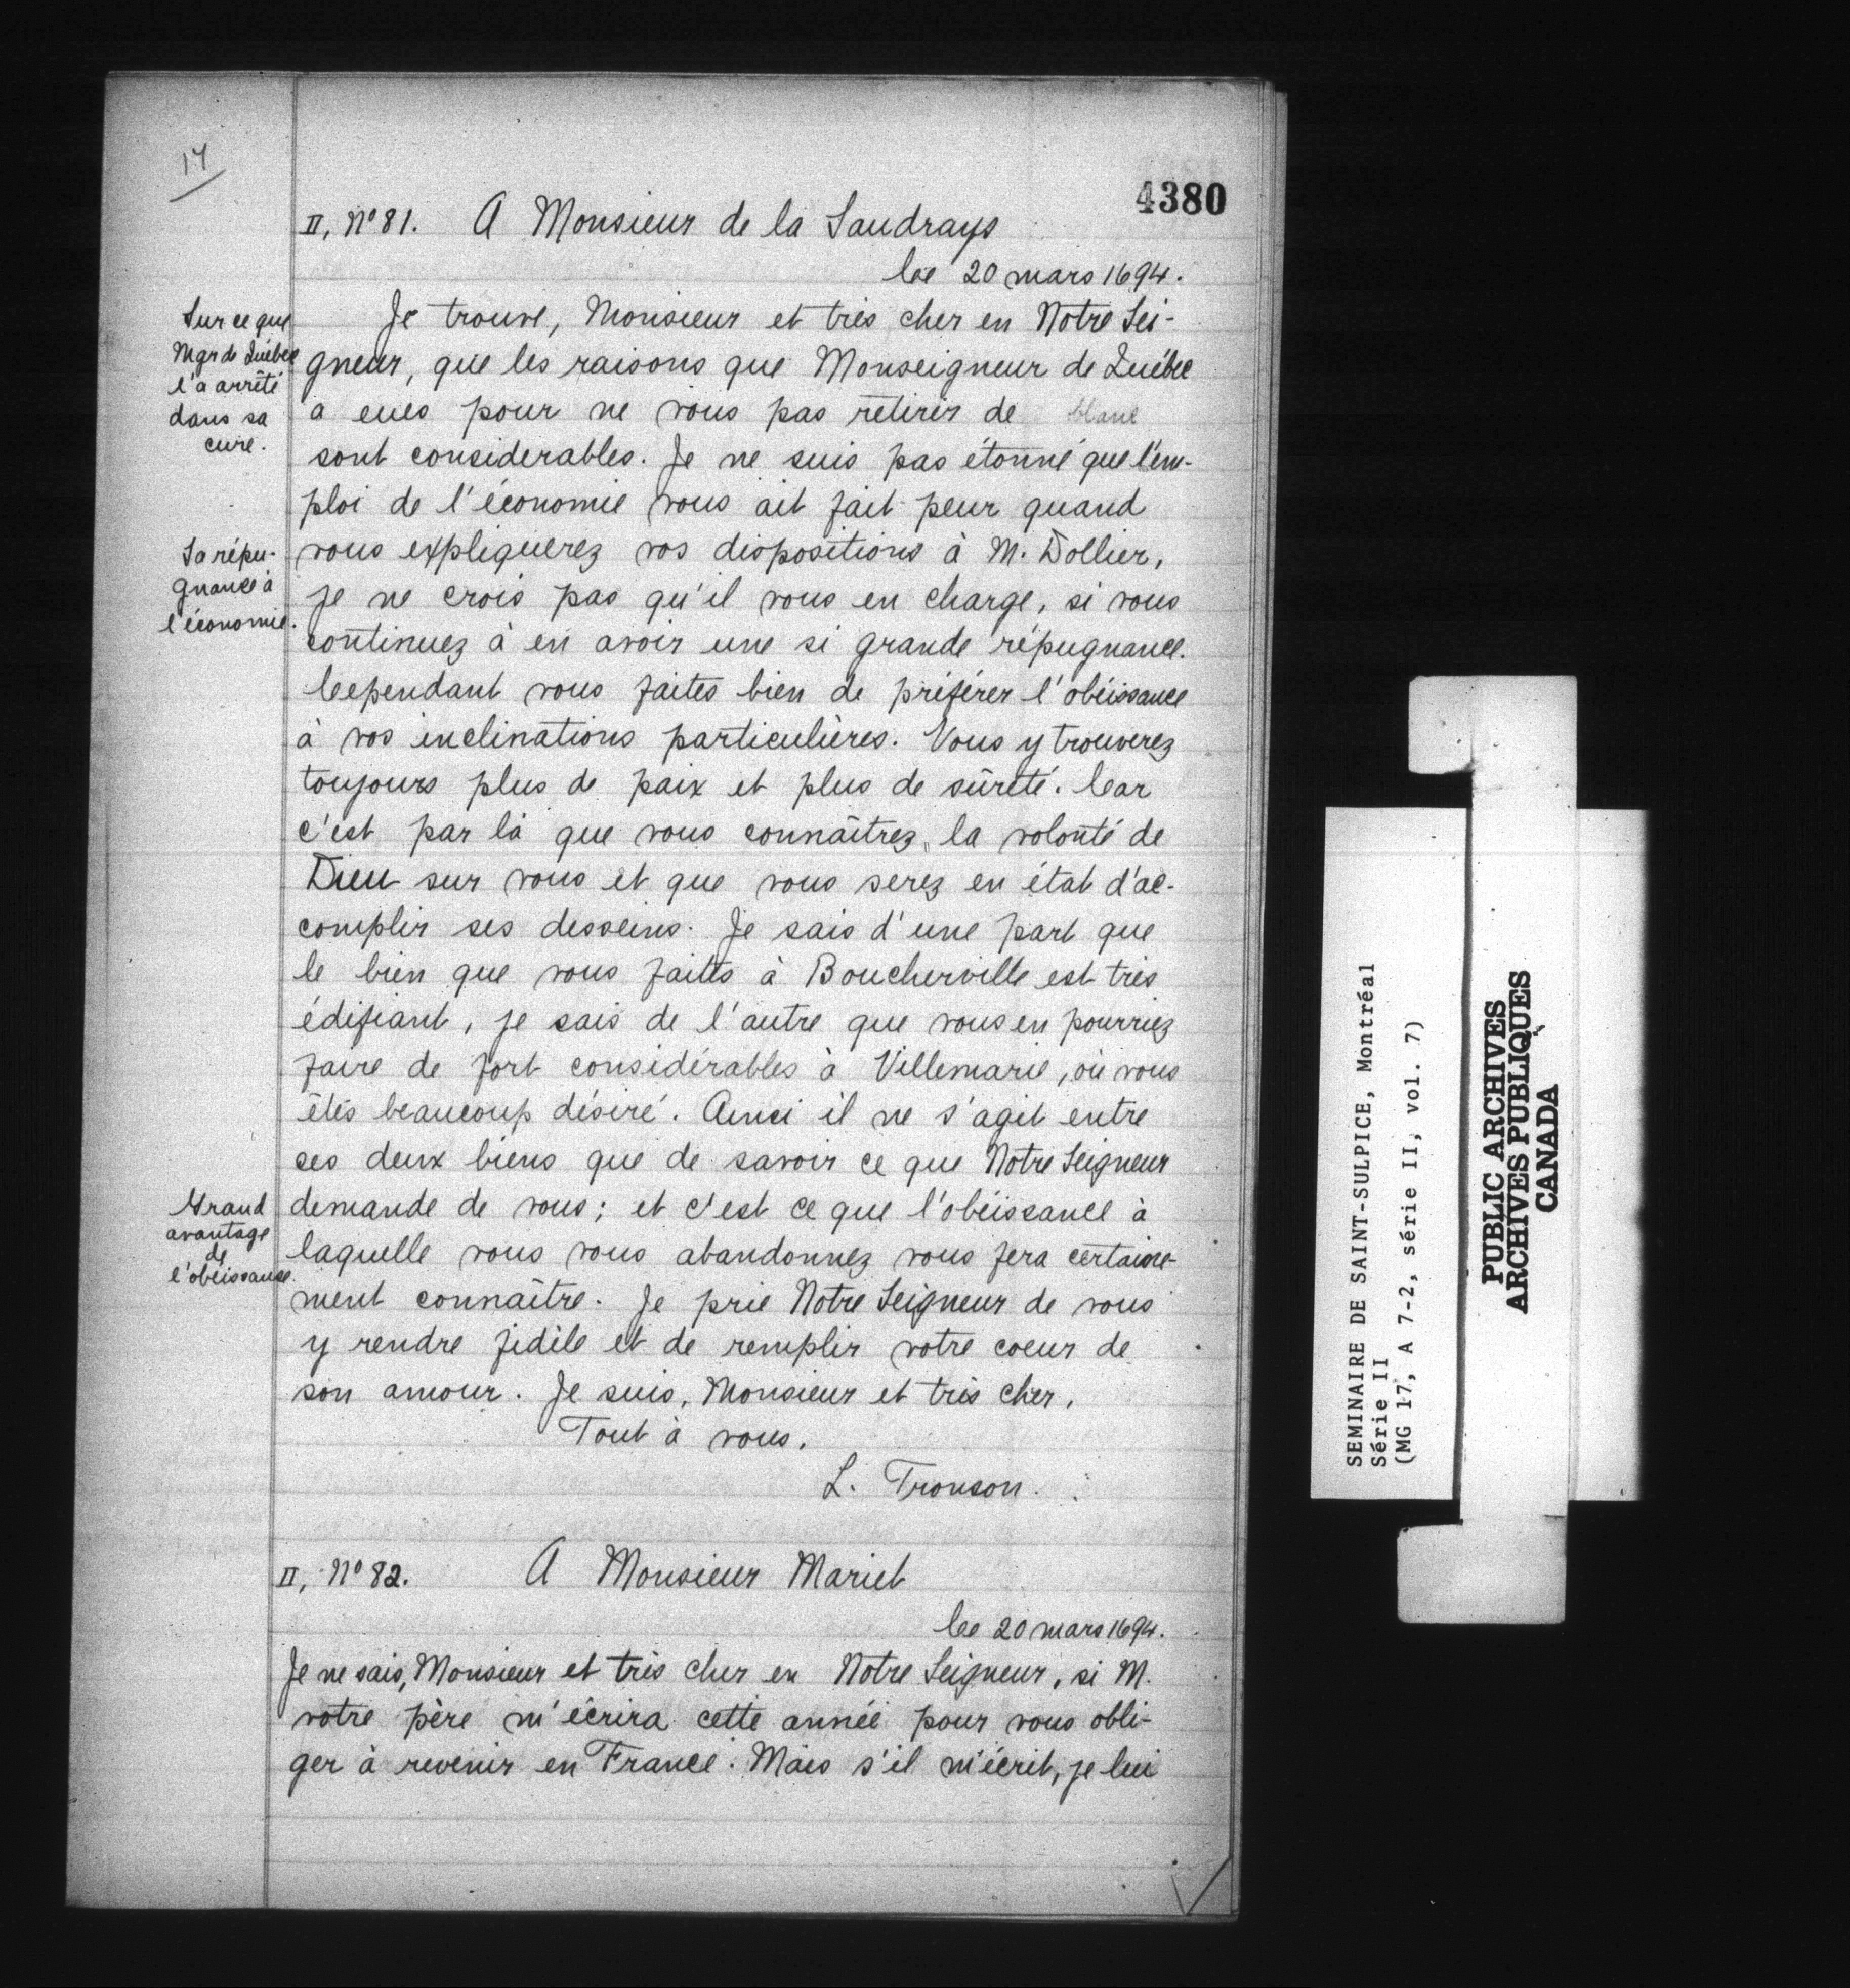 17
4380
II, N° 81. A Monsieur de la Saudrays
Ce 20 mars 1694.
Sur ce que
Mgr de Québec
l'a arrêté
dans sa
cure.
Je trouve, Monsieur et très cher en Notre Sei-
gneur, que les raisons que Monseigneur de Québec
a eues pour ne vous pas retirer de blanc
sont considerables. Je ne suis pas étonné que l'em-
ploi de l'économie vous ait fait peur quand
Sa répu-
gnance à
l'économie.
vous expliquerez vos dispositions à M. Dollier,
je ne crois pas qu'il vous en charge, si vous
continuez à en avoir une si grande répugnance.
Cependant vous faites bien de préférer l'obéissance
à vos inclinations particulières. Vous y trouverez
toujours plus de paix et plus de sûreté. Car
c'est par là que vous connaîtrez, la volonté de
Dieu sur vous et que vous serez en état d'ac-
complir ses desseins. Je sais d'une part que
le bien que vous faites à Boucherville est très
édifiant, je sais de l'autre que vous en pourriez
faire de fort considérables à Villemarie, où vous
êtes beaucoup désiré. Ainsi il ne s'agit entre
ces deux biens que de savoir ce que Notre Seigneur
Grand
avantage
de
l'obéissance.
demande de vous; et c'est ce que l'obéissance à
laquelle vous vous abandonnez vous fera certaine-
ment connaître. Je prie Notre Seigneur de vous
y rendre fidèle et de remplir votre coeur de
son amour. Je suis, Monsieur et très cher,
Tout à vous.
L. Tronson.
II, N° 82. A Monsieur Mariet
Ce 20 mars 1694.
Je ne sais, Monsieur et très cher en Notre Seigneur, si M.
votre père m'écrira cette année pour vous obli-
ger à revenir en France. Mais s'il m'écrit, je lui
SEMINAIRE DE SAINT-SULPICE, Montréal
Série II
(MG 17, A 7-2, série II, vol. 7)
PUBLIC ARCHIVES
ARCHIVES PUBLIQUES
CANADA